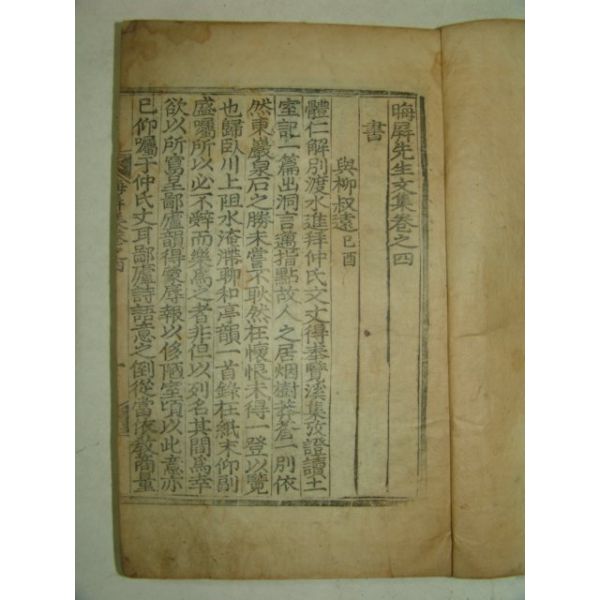 晦屏先生文集卷之四
書
與柳叔遠己酉
體仁解別渡水進拜仲氏文丈得奉覽溪集攷證讀土
室記一篇出洞言邁指點故人之居烟樹莽蒼一別依
然東巖泉石之勝未嘗不耿然在懷恨未得一登以覽
也歸臥川上阻水淹滯聊和亭韻一首錄在紙末仰副
盛囑所以必不辭而樂爲之者非但以列名其間爲幸
欲以所寫呈鄙廬韻得蒙辱報以侈陋室頃以此意亦
已仰囑于仲氏丈耳鄙廬詩語意之倒從當依敎商量